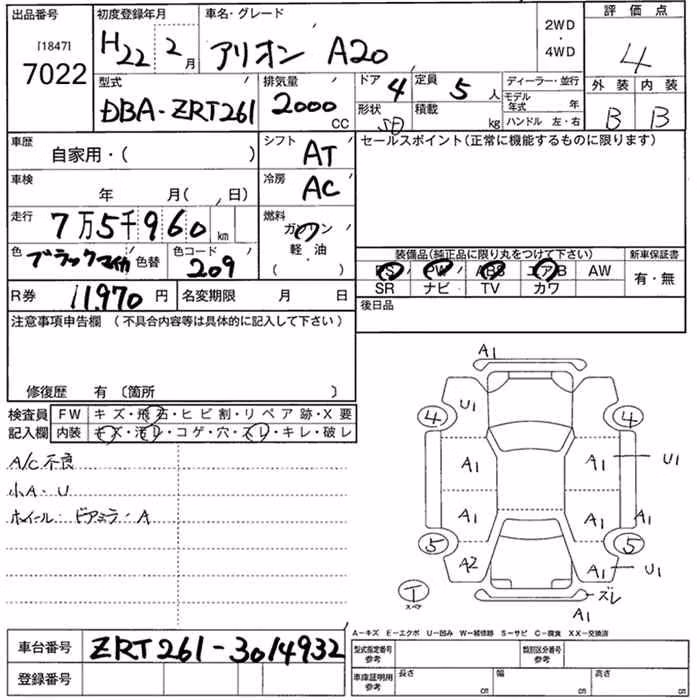 出品番号
[1847]
7022
初度登録年月
H22 2月
車名・グレード
アリオン A20
2WD
・
4WD
評価点
4
外装 内装
B B
型式
DBA-ZRT261
排気量
2000 CC
ドア 4
定員 5 人
形状 SD
積載 kg
ディーラー・並行
モデル年式 年
ハンドル 左・右
車歴
自家用・( )
シフト
AT
セールスポイント(正常に機能するものに限ります)
車検
年 月( , 日)
冷房
AC
走行
7万5千960 km
燃料
ガソリン
軽・油
( )
色
ブラックマイカ 色替
色コード
209
装備品(純正品に限り丸をつけて下さい)
新車保証書
PS PW ABS エアB AW
SR ナビ TV カワ
有・無
R券 11970 円
名変期限 月 日
後日品
注意事項申告欄(不具合内容等は具体的に記入して下さい)
修復歴 有〔箇所 〕
検査員
記入欄
FW キズ・飛石・ヒビ割・リペア跡・X要
内装 キズ・汚レ・コゲ・穴・スレ・キレ・破レ
A/C不良
小A・U
ホイール・ドアミラーA
A1
U1
4 4
A1 A1 U1
A1 A1 A1
5 5
A2 A1 U1
T
スペア
ズレ
A1
A−キズ E−エクボ U−凹み W−補修跡 S−サビ C−腐食 XX−交換済
車台番号 ZRT261-3014932
登録番号
型式指定番号
参考
類別区分番号
参考
車庫証明用
参考
長さ cm
幅 cm
高さ cm